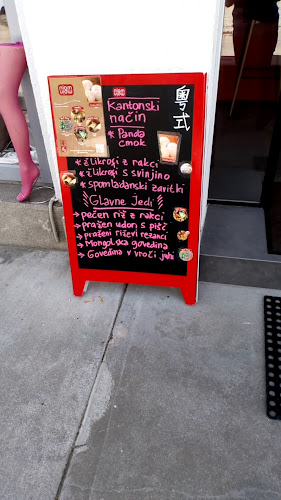 Kantonski
način
* Panda
cmok
粤式
* žlikrofi z rakci
* žlikrofi s svinjino
* spomladanski zavitki
Glavne Jedi
→ pečen riž z rakci
→ pražen udon s pišč.
→ praženi riževi rezanci
→ Mongolska govedina
→ Govedina v vroči juhi